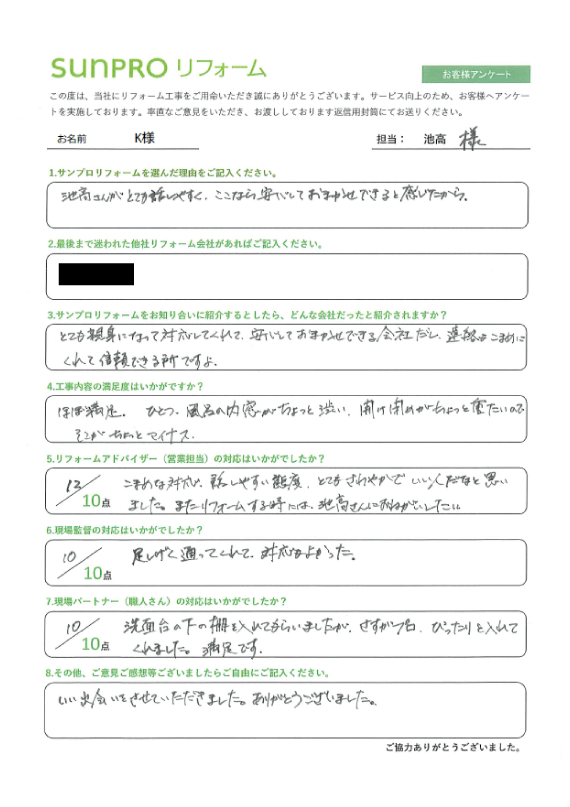 SUNPRO リフォーム
お客様アンケート
この度は、当社にリフォーム工事をご用命いただき誠にありがとうございます。サービス向上のため、お客様へアンケー
トを実施しております。率直なご意見をいただき、お渡ししております返信用封筒にてお送りください。
お名前 K様 担当： 池高 様
1.サンプロリフォームを選んだ理由をご記入ください。
池高さんがとても話しやすく、ここなら安心しておまかせできると感じたから。
2.最後まで迷われた他社リフォーム会社があればご記入ください。
3.サンプロリフォームをお知り合いに紹介するとしたら、どんな会社だったと紹介されますか？
とても親身になって対応してくれて、安心しておまかせできる会社だし、連絡もこまめに
くれて信頼できる所ですよ。
4.工事内容の満足度はいかがですか？
ほぼ満足。ひとつ、風呂の内窓がちょっと渋い、開け閉めがちょっと重たいので
そこがちょっとマイナス。
5.リフォームアドバイザー（営業担当）の対応はいかがでしたか？
12／10点 こまめな対応、話しやすい態度、とてもさわやかでいい人だなと思い
ました。またリフォームする時には、池高さんにおねがいしたい
6.現場監督の対応はいかがでしたか？
10／10点 足しげく通ってくれて、対応もよかった。
7.現場パートナー（職人さん）の対応はいかがでしたか？
10／10点 洗面台の下の棚を入れてもらいましたが、さすがプロ、ぴったりと入れて
くれました。満足です。
8.その他、ご意見ご感想等ございましたらご自由にご記入ください。
いい出会いをさせていただきました。ありがとうございました。
ご協力ありがとうございました。